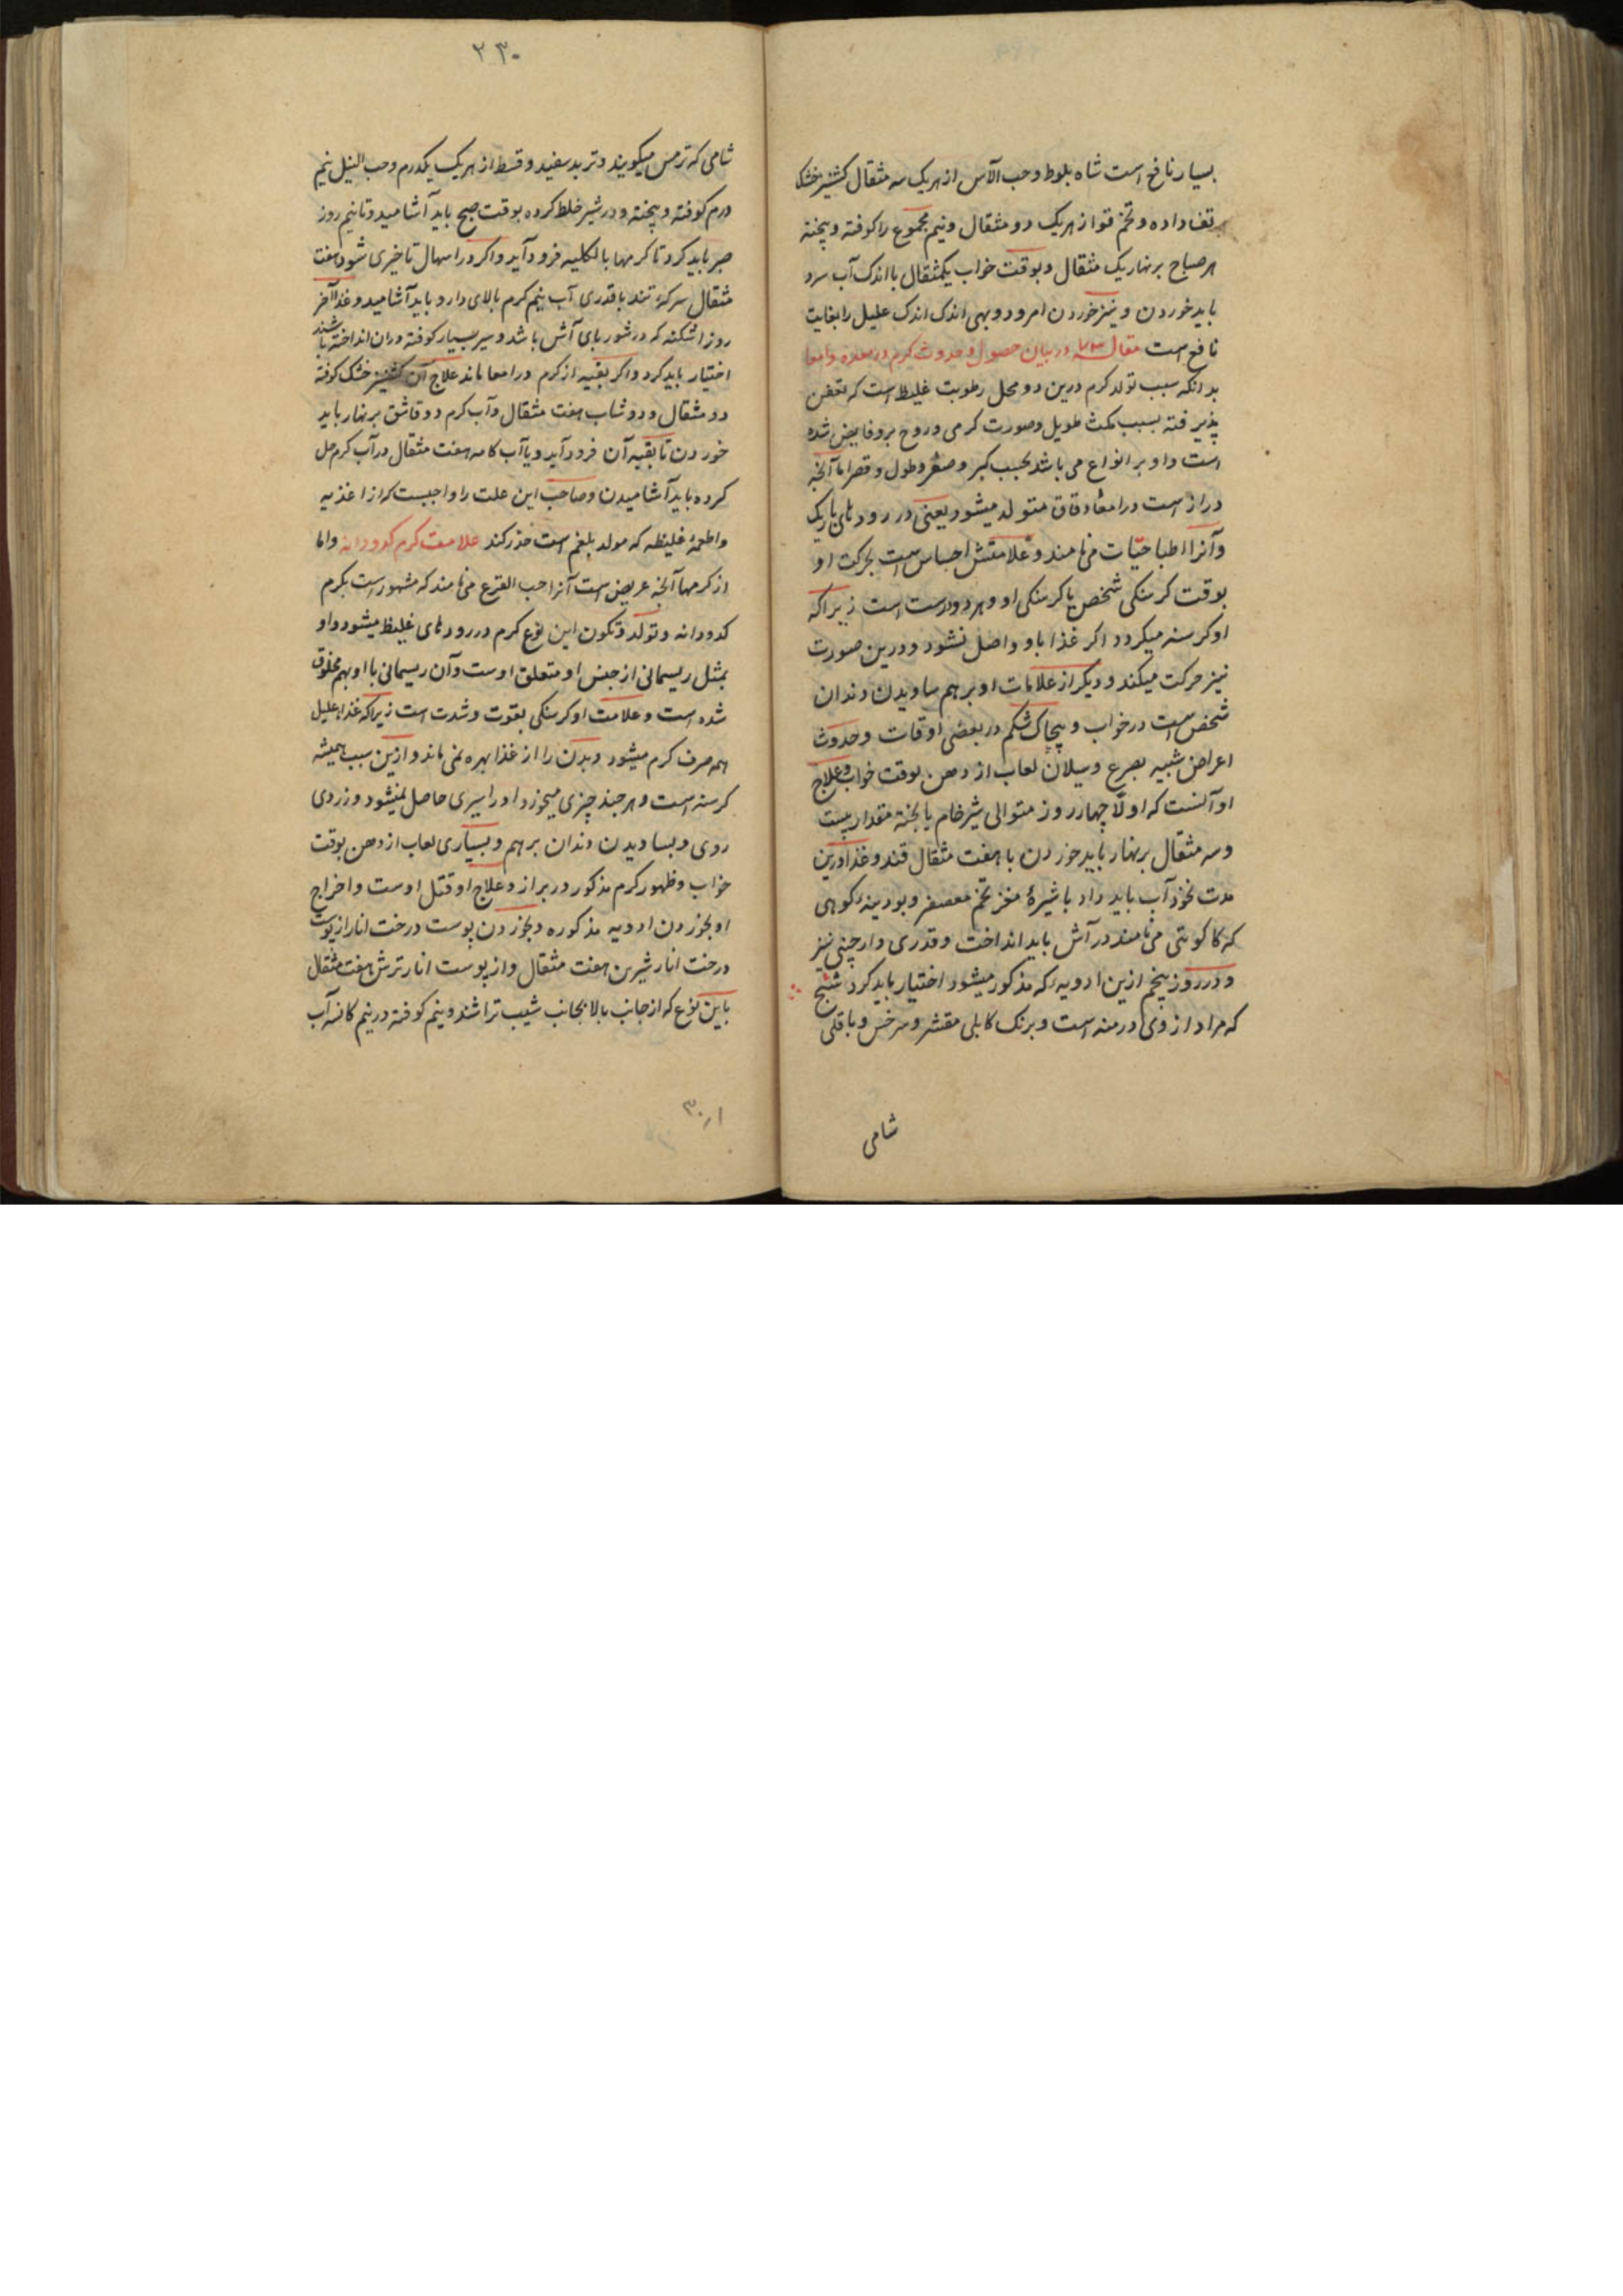 بسیار نافع است شاه بلوط و حب الآس از هریک سه مثقال کشنیز خشک
تف داده و تخم قوا از هریک دو مثقال و نیم مجموع را کوفته و پیخته
هر صباح بر نهار یک مثقال و بوقت خواب یکمثقال با اندک آب سرد
باید خوردن و نیز خوردن امرود و بهی اندک اندک علیل را بغایت
نافع است مقاله ۷۳ در بیان حصول و حدوث کرم در معده و امعا
بدانکه سبب تولد کرم درین دو محل رطوبت غلیظ است که تعفن
پذیرفته بسبب مکث طویل و صورت کرمی و روح برو فایض شده
است و او بر انواع می باشد بحسب کبر و صغر و طول و قصر اما آنچه
دراز است در امعاء دقاق متولد میشود یعنی در رودهای باریک
و آنرا اطبا حیّات می نامند و علامتش احساس است بحرکت او
بوقت کرسنکی شخص یا کرسنکی او و هر دو درست است زیرا که
او کرسنه میکردد اکر غذا باو واصل نشود و درین صورت
نیز حرکت میکند و دیکر از علامات او بر هم ساویدن دندان
شخص است در خواب و پیچاک شکم در بعضی اوقات و حدوث
اعراض شبیه بصرع و سیلان لعاب از دهن بوقت خواب و علاج
او آنست که اولاً چهار روز متوالی شیر خام یا پخته مقدار بیست
و سه مثقال بر نهار باید خوردن با هفت مثقال قند و غذا درین
مدت نخود آب باید داد با شیرهٔ مغز تخم معصفر و بودینهٔ کوهی
که کاکوتی می نامند در آش باید انداخت و قدری دارچینی نیز
و در روز پنجم ازین ادویه که مذکور میشود اختیار باید کرد شیح
که مراد از وی درمنه است و برنک کابلی مقشر و سرخس و باقلی
شامی
۲۳۰
شامی که ترمس میکویند و تربد سفید و قسط از هریک یکدرم و حب النیل نیم
درم کوفته و پیخته و در شیر خلط کرده بوقت صبح باید آشامید و تا نیم روز
صبر باید کرد تا کرمها بالکلیه فرود آید و اکر در اسهال تاخیری شود هفت
مثقال سرکهٔ تند با قدری آب نیم کرم بالای دارو باید آشامید و غذا آخر
روز اشکنه که در شوربای آش باشد و سیر بسیار کوفته در ان انداخته باشند
اختیار باید کرد و اکر بقیه از کرم در امعا ماند علاج آن کشنیز خشک کوفته
دو مثقال و دوشاب هفت مثقال و آب کرم دو قاشق بر نهار باید
خوردن تا بقیه آن فرود آید و یا آب کامه هفت مثقال در آب کرم حل
کرده باید آشامیدن و صاحب این علت را واجبست که از اغذیه
و اطعمهٔ غلیظه که مولد بلغم است حذر کند علامت کرم کدودانه و اما
از کرمها آنچه عریض است آنرا حب القرع می نامند که مشهور است بکرم
کدودانه و تولد و تکون این نوع کرم در رودهای غلیظ میشود و او
بمثل ریسمانی از جنس او متعلق اوست و آن ریسمانی با او بهم مخلوق
شده است و علامت او کرسنکی بقوت و شدت است زیرا که غذاء علیل
همه صرف کرم میشود و بدن را از غذا بهره نمی ماند و ازین سبب همیشه
کرسنه است و هر چند چیزی میخورد او را سیری حاصل نمیشود و زردی
روی و بساویدن دندان بر هم و بسیاری لعاب از دهن بوقت
خواب و ظهور کرم مذکور در براز و علاج او قتل اوست و اخراج
او بخوردن ادویه مذکوره و بخوردن پوست درخت انار از پوست
درخت انار شیرین هفت مثقال و از پوست انار ترش هفت مثقال
باین نوع که از جانب بالا بجانب شیب تراشند و نیم کوفته در نیم کاسه آب